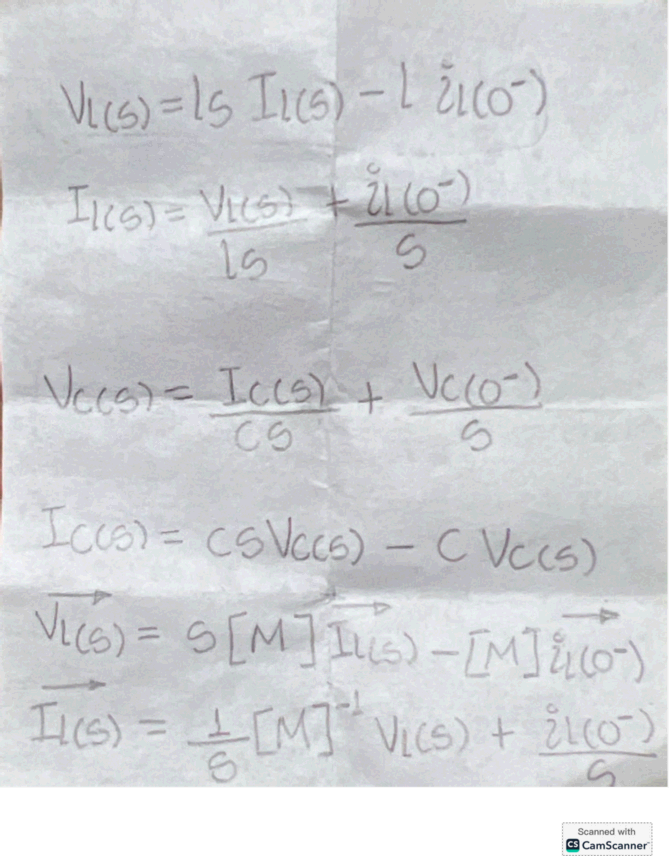 Vl(s) = ls Il(s) - l il(0⁻)
Il(s) = Vl(s)/ls + il(0⁻)/s
Vc(s) = Ic(s)/cs + Vc(0⁻)/s
Ic(s) = csVc(s) - c Vc(s)
Vl(s)⃗ = s[M] Il(s)⃗ - [M] il(0⁻)⃗
Il(s)⃗ = 1/s [M]⁻¹ Vl(s) + il(0⁻)/s
Scanned with
CS CamScanner